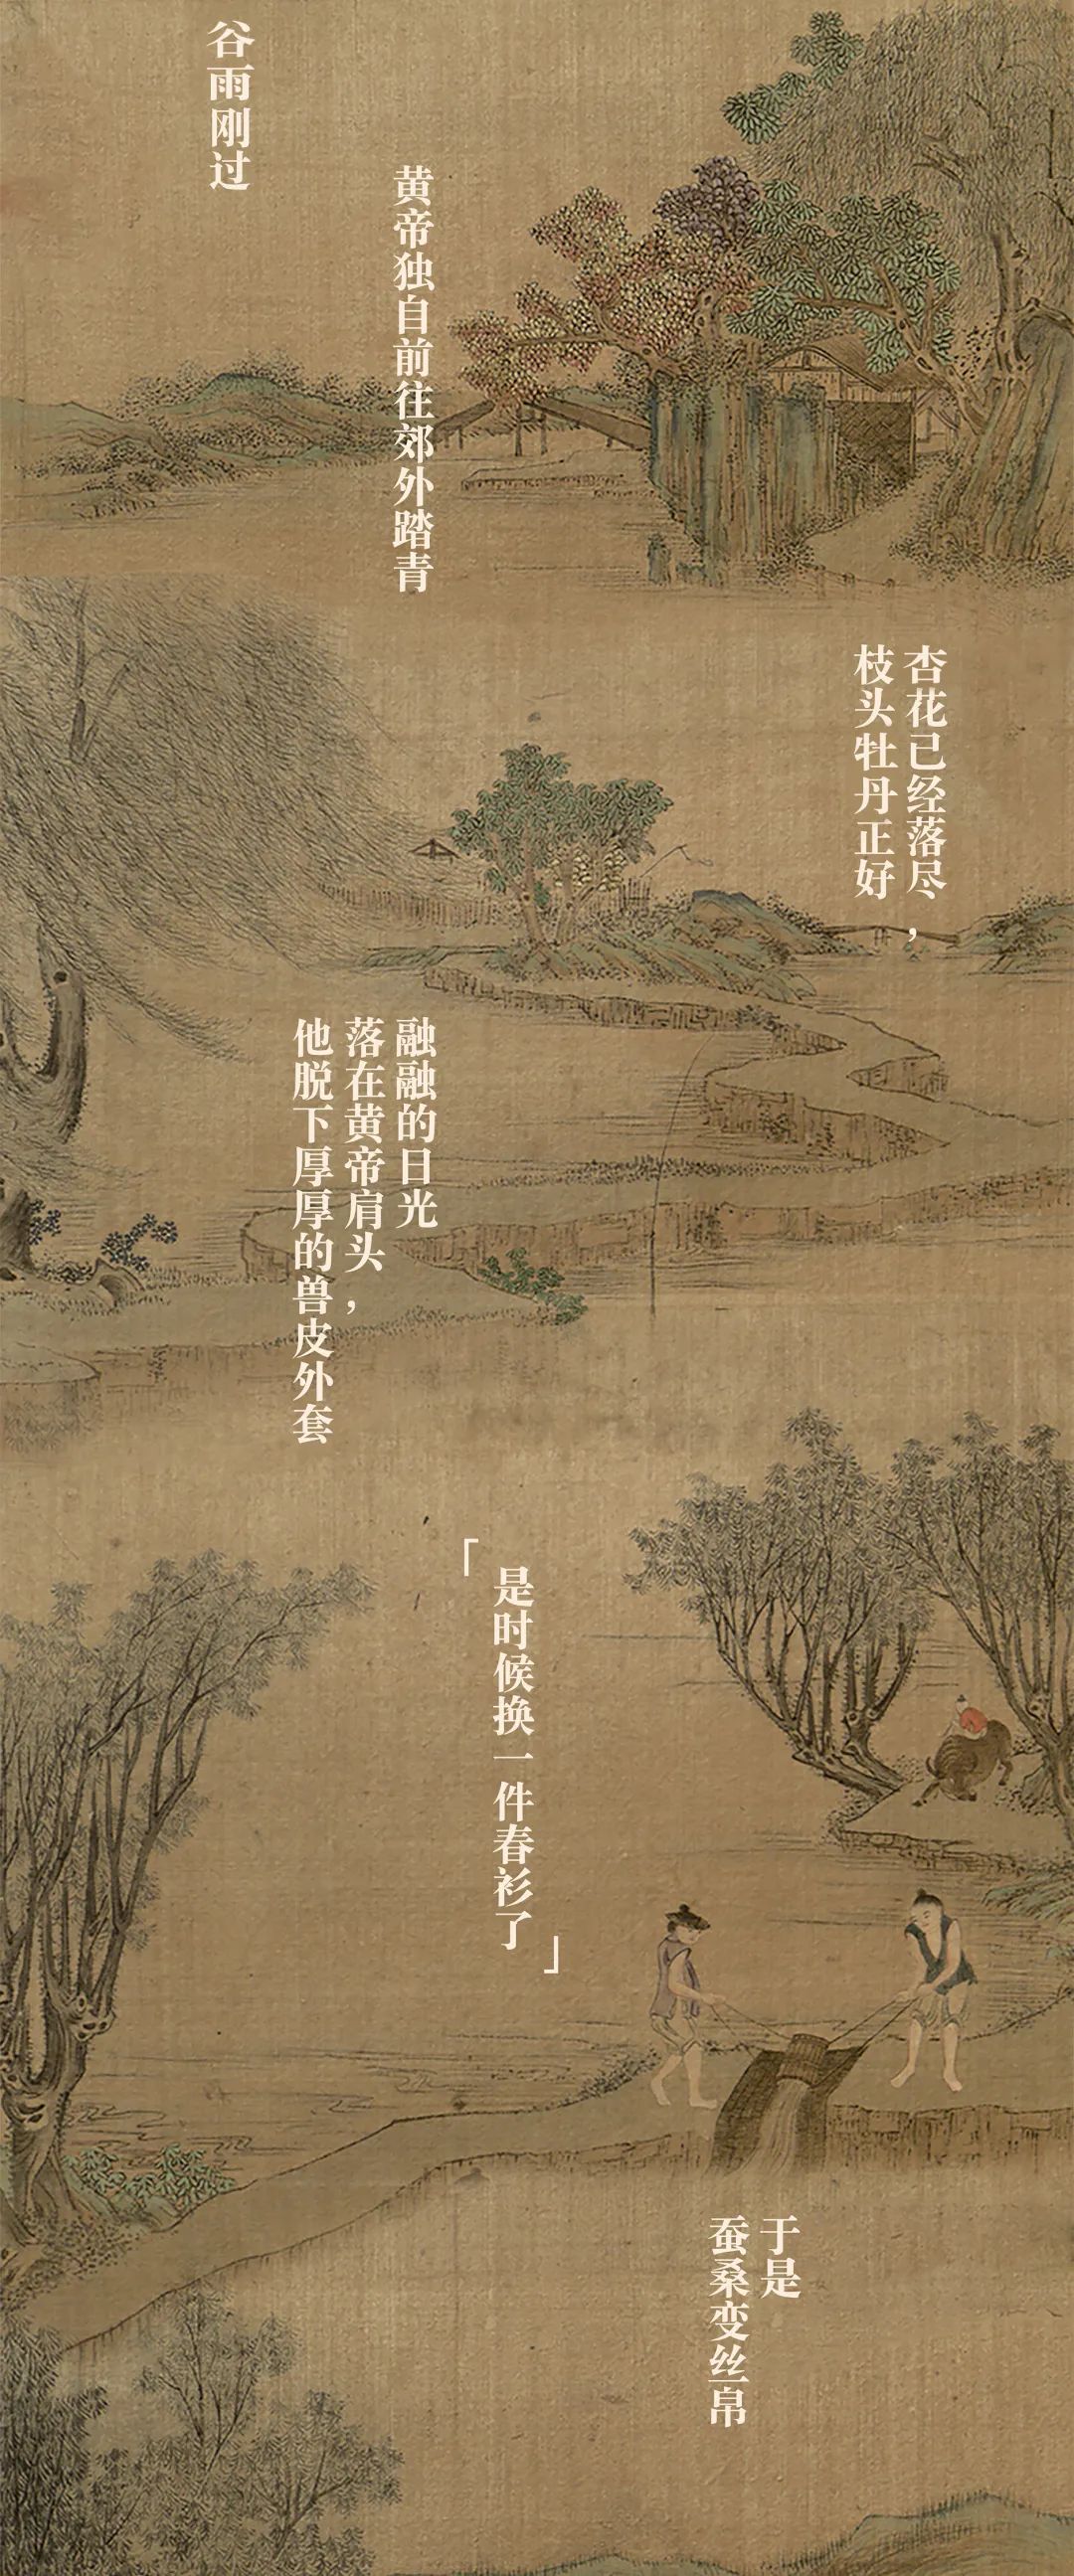 谷雨刚过
黄帝独自前往郊外踏青
杏花已经落尽，
枝头牡丹正好
融融的日光
落在黄帝肩头，
他脱下厚厚的兽皮外套
「是时候换一件春衫了」
于是
蚕桑变丝帛